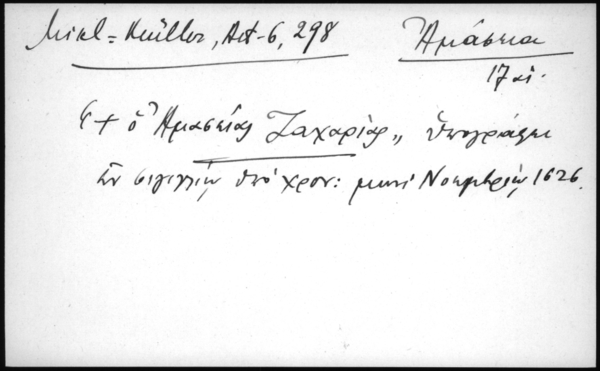 Mikl=Müller, Act-6, 298
Ἀμάσεια
17 αἰ.
"+ ὁ Ἀμασείας Ζαχαρίας" ὑπογράφει
ἐν σιγιλλίῳ ὑπὸ χρον: μηνὶ Νοεμβρίῳ 1626.